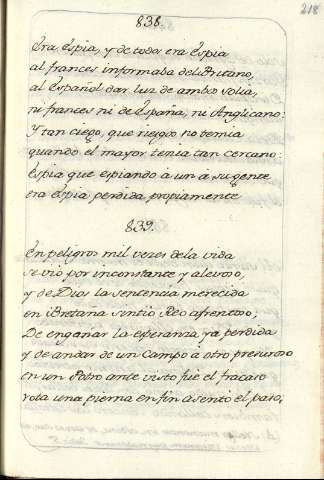 218
838.
Era Espia, y de todos era Espia
al frances informaba del Britano,
al Español dar luz de ambos solia,
ni frances ni de España, ni Anglicano:
Y tan ciego, que riesgos no temia
quando el mayor tenia tan cercano:
Espia que espiando a un á su gente
era Espia perdida propiamente
839.
En peligros mil vezes de la vida
se vió por inconstante y alevoso,
y de Dios la sentencia merecida
en Bretana sintio Reo afrentoso;
De engañar la esperanza ya perdida
y de andar de un Campo a otro presuroso
en un Potro ante visto fue el fracaso
rota una pierna en fin asento el paso;